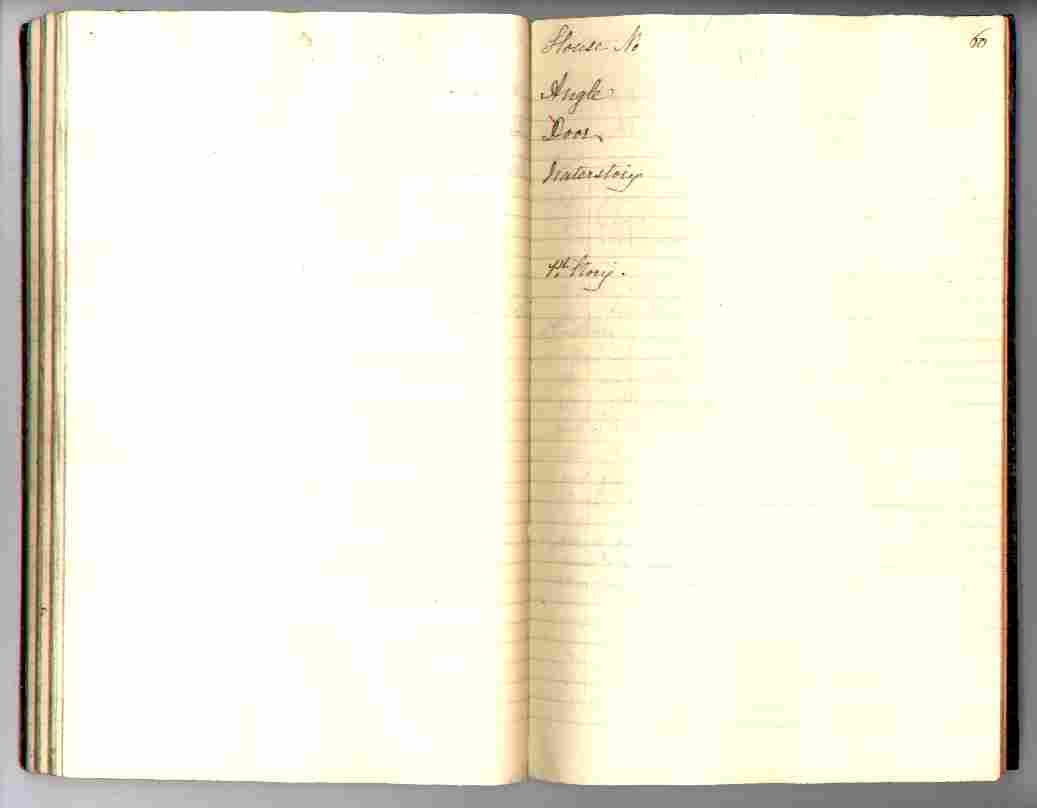 House No 60
Angle
Door
Waterstory
1st. Story.